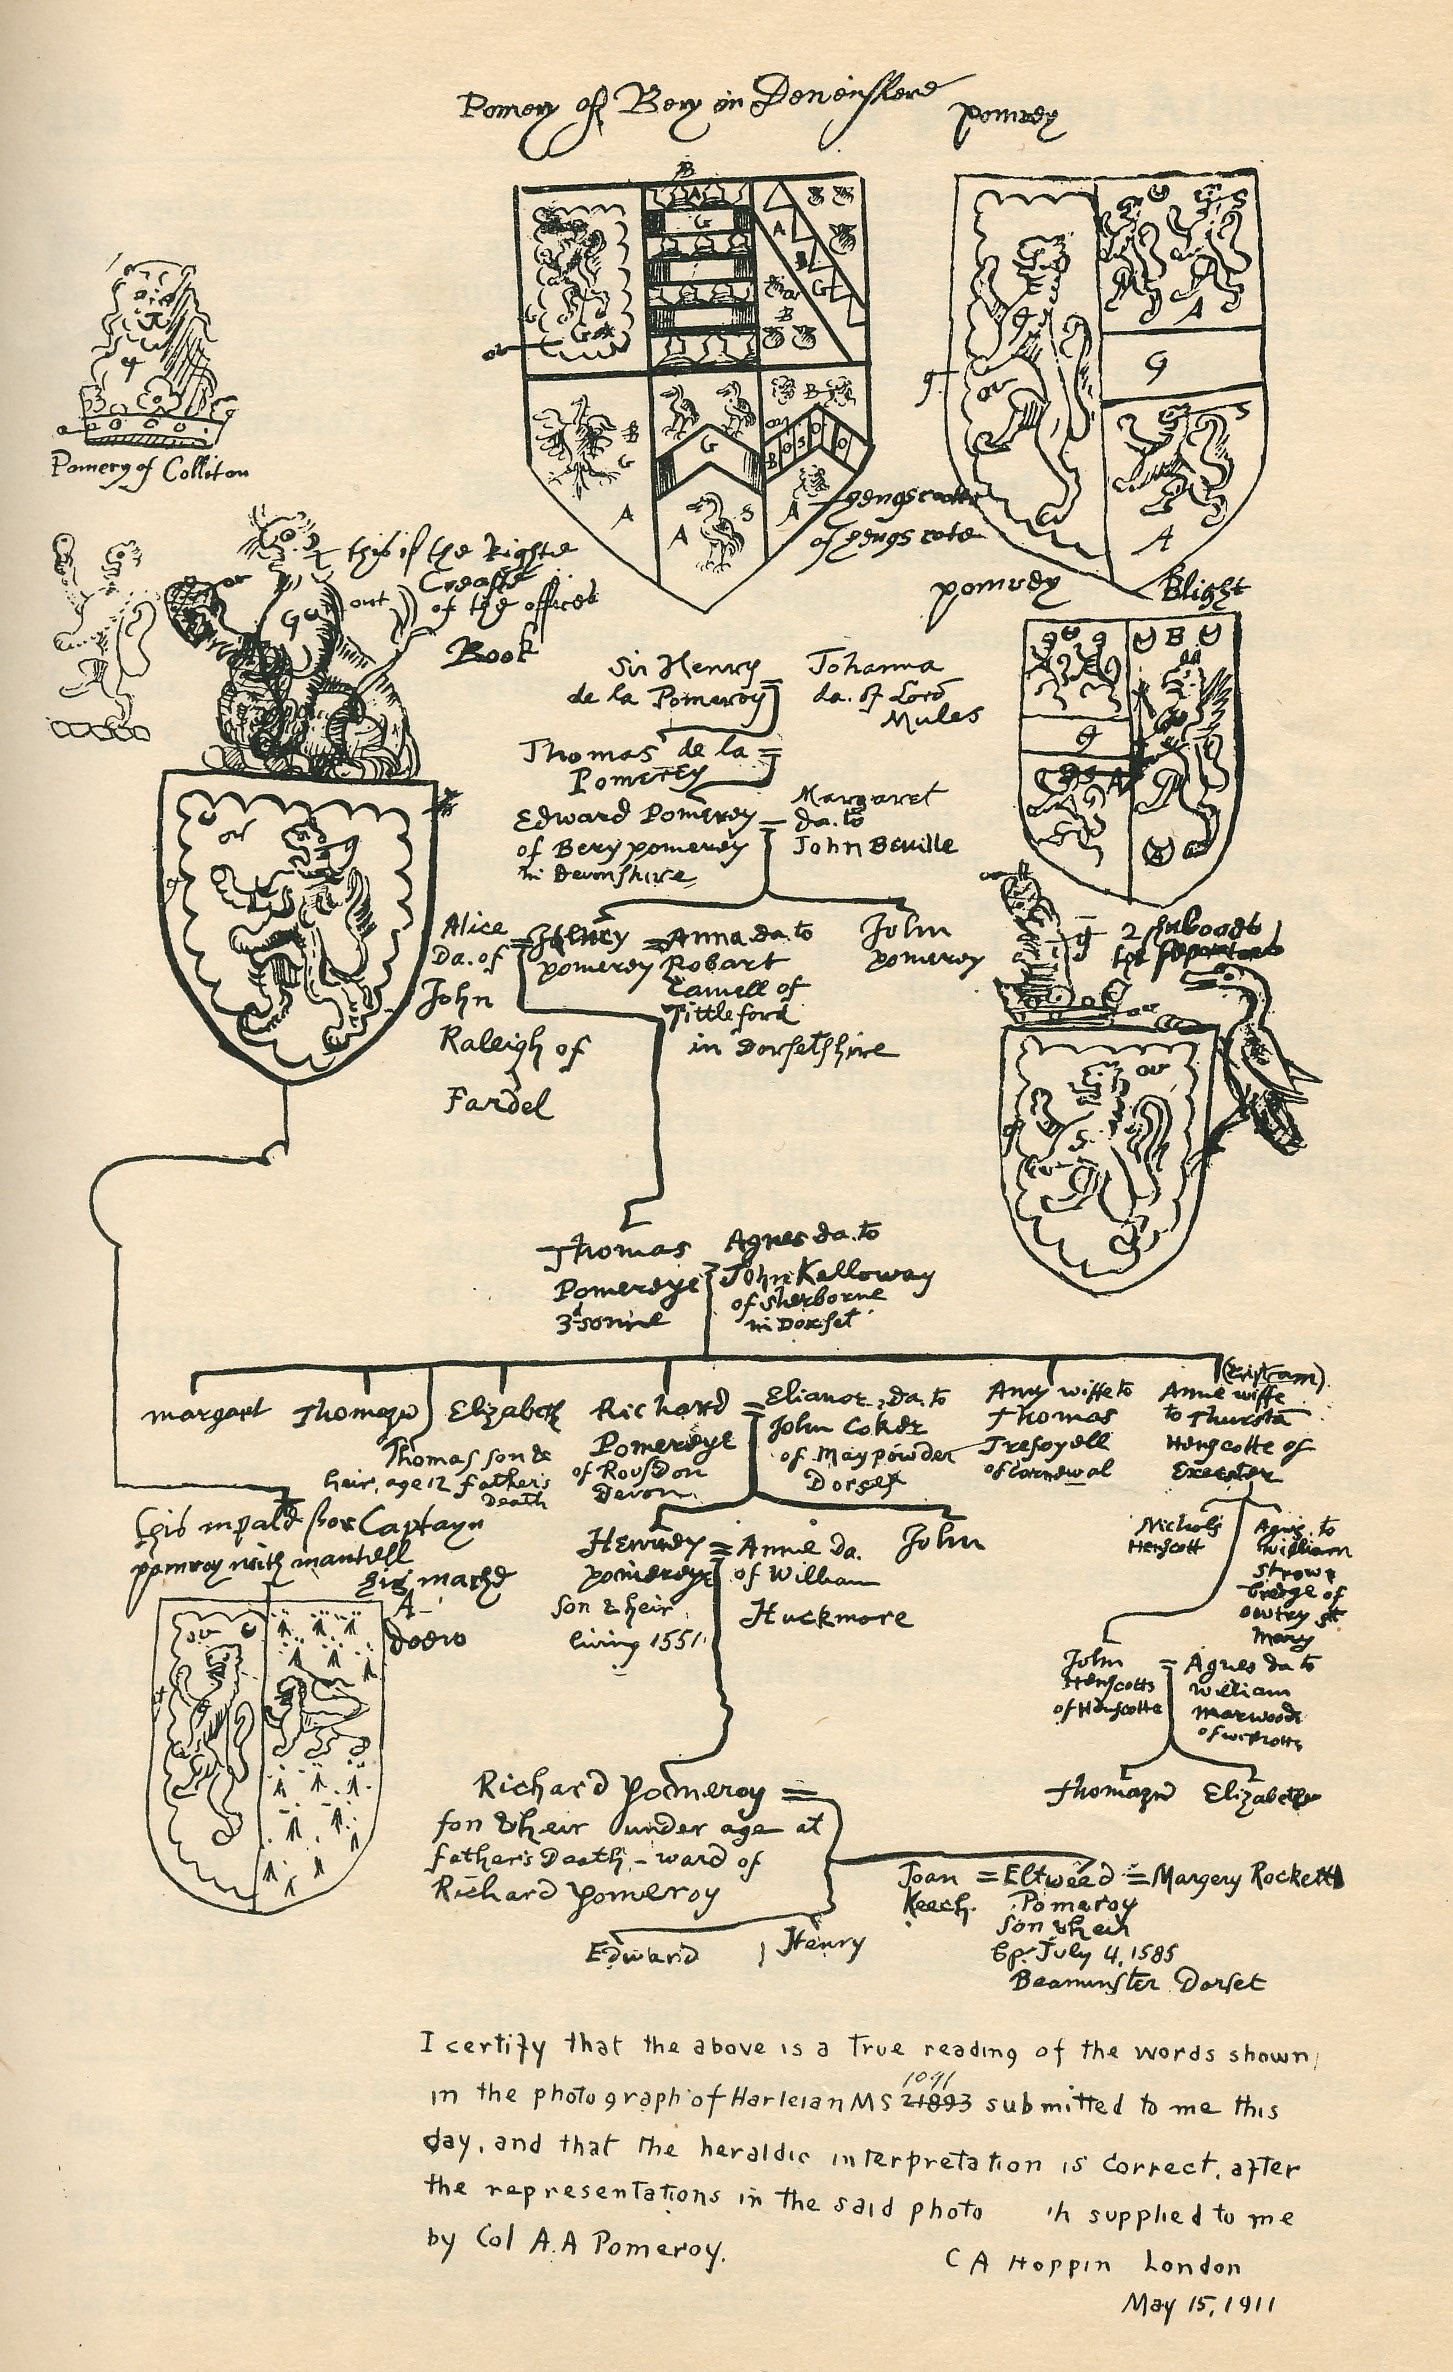 Pomery of Bery in Devenshere
pomrey
B
A
G
A
B
G
or
B
G
or
B
G
A
G
A
S
B
or
A
gengscotte
of gengs cote
S
A
G
S
A
g
or
G
Pomery of Colliton
this is the Righte
Creaste
of the offices
Book
or
pomrey
Blight
g g
B
g
A
Sir Henry
de la Pomeroy =
Johanna
da. of Lord
Mules
Thomas de la =
Pomerey
Edward Pomerey =
of Bery pomerey
in Devonshire
Margaret
da. to
John Beville
Alice
Da. of
John
Raleigh of
Fardel
= Henry
pomerey
= Anna da. to
Robart
Camell of
Tittleford
in Dorsetshire
John
pomerey
or
g
or
g
or
Thomas
Pomereye
3d sonne
Agnes da. to
John Kelloway
of Sherborne
in Dorset
margaet
Thomazin
Thomas son &
heir, age 12 father's
Death
Elizabeth
Richard
Pomereye
of Rousdon
Devon
= Elianor, da. to
John Coker
of Maypowder
Dorset
Amy wiffe to
Thomas
Tresoyell
of Cornewal
(Tristram)
Anne wiffe
to Thursta
Hengcotte of
Exeester
this inpald for Captayn
pomroy with mantell
his mache
A
doew
or
Henrrey
pomereye
son & heir
living 1551
= Anne da.
of William
Huckmore
John
Nichols
Hengcott
Agnis to
William
Strow
bredge of
owtry St
Mary
John
Hengcotts
of Hengcotte
= Agnes da to
William
Marwoode
Thomazin
Elizabethe
Richard Pomeroy =
son & heir under age at
father's Death, - ward of
Richard Pomeroy
Joan
Keech.
= Eltweed
Pomeroy
son & heir
bp. July 4, 1585
Beaminster Dorset
= Margery Rockett
Edward
Henry
I certify that the above is a True reading of the words shown,
1091
in the photograph of Harleian MS 21893 submitted to me this
day, and that the heraldic interpretation is correct, after
the representations in the said photo h supplied to me
by Col A. A Pomeroy.
C A Hoppin London
May 15, 1911